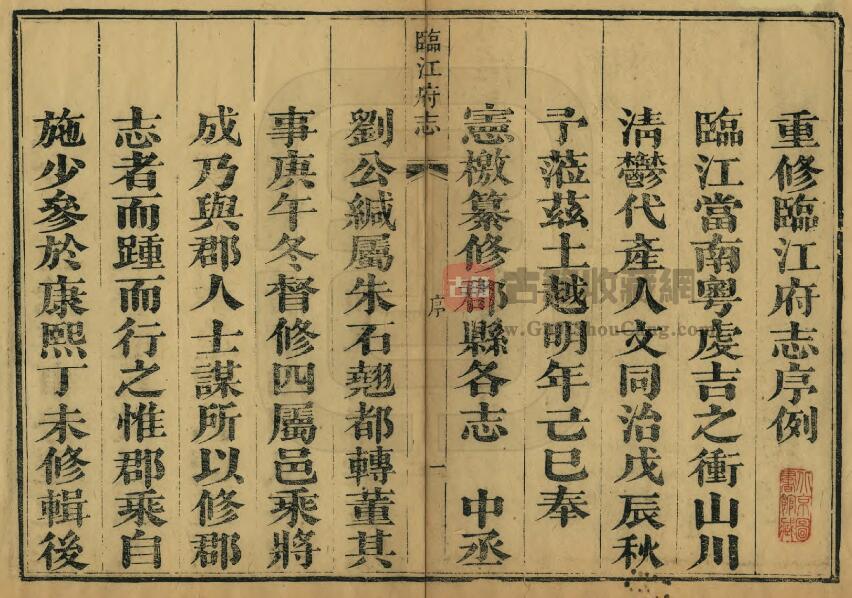 重修臨江府志序例
臨江當南粵虔吉之衝山川
清鬱代產人文同治戊辰秋
予蒞茲土越明年己巳奉
憲檄纂修郡縣各志 中丞
臨江府志
序
一
劉公緘屬朱石翹都轉董其
事庚午冬督修四屬邑乘將
成乃與郡人士謀所以修郡
志者而踵而行之惟郡乘自
施少參於康熙丁未修輯後
古籍收藏網
www.GujiShouCang.com
北京圖
書館藏